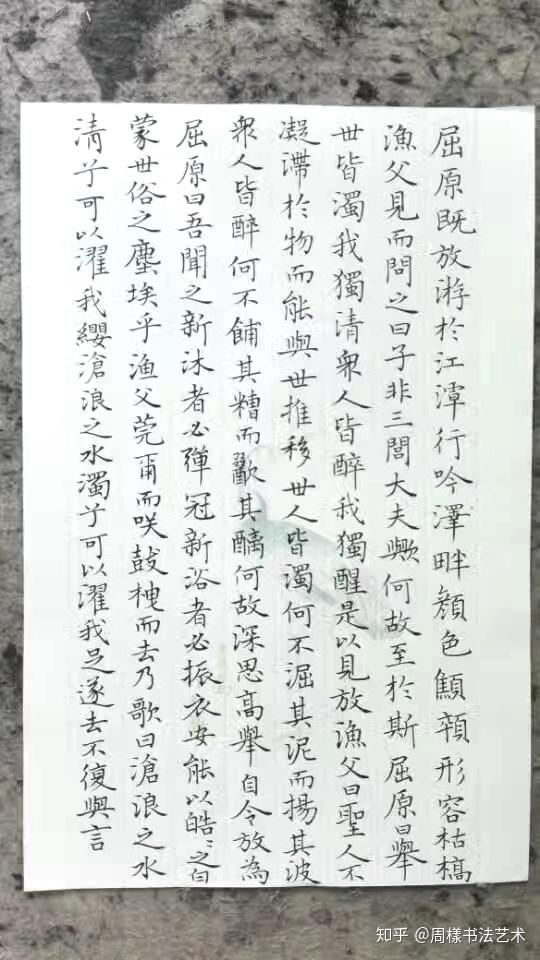 屈原既放游於江潭行吟澤畔顏色顦顇形容枯槁
漁父見而問之曰子非三閭大夫歟何故至於斯屈原曰舉
世皆濁我獨清衆人皆醉我獨醒是以見放漁父曰聖人不
凝滯於物而能與世推移世人皆濁何不淈其泥而揚其波
衆人皆醉何不餔其糟而歠其醨何故深思高舉自令放為
屈原曰吾聞之新沐者必彈冠新浴者必振衣安能以皓〻之白
蒙世俗之塵埃乎漁父莞爾而咲鼓枻而去乃歌曰滄浪之水
清兮可以濯我纓滄浪之水濁兮可以濯我足遂去不復與言
知乎 @周樣书法艺术